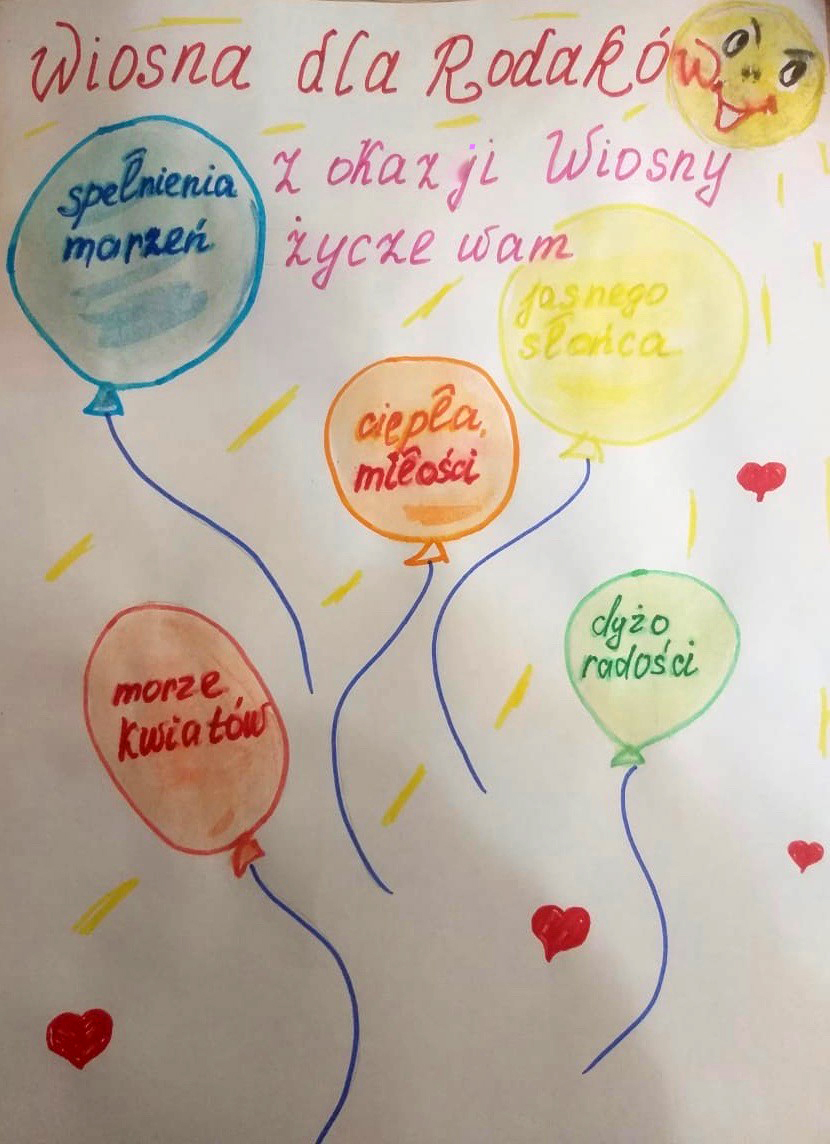 Wiosna dla Rodaków
z okazji Wiosny
życze wam
spełnienia
marzeń
jasnego
słońca
ciepła,
miłości
dyżo
radości
morze
kwiatów